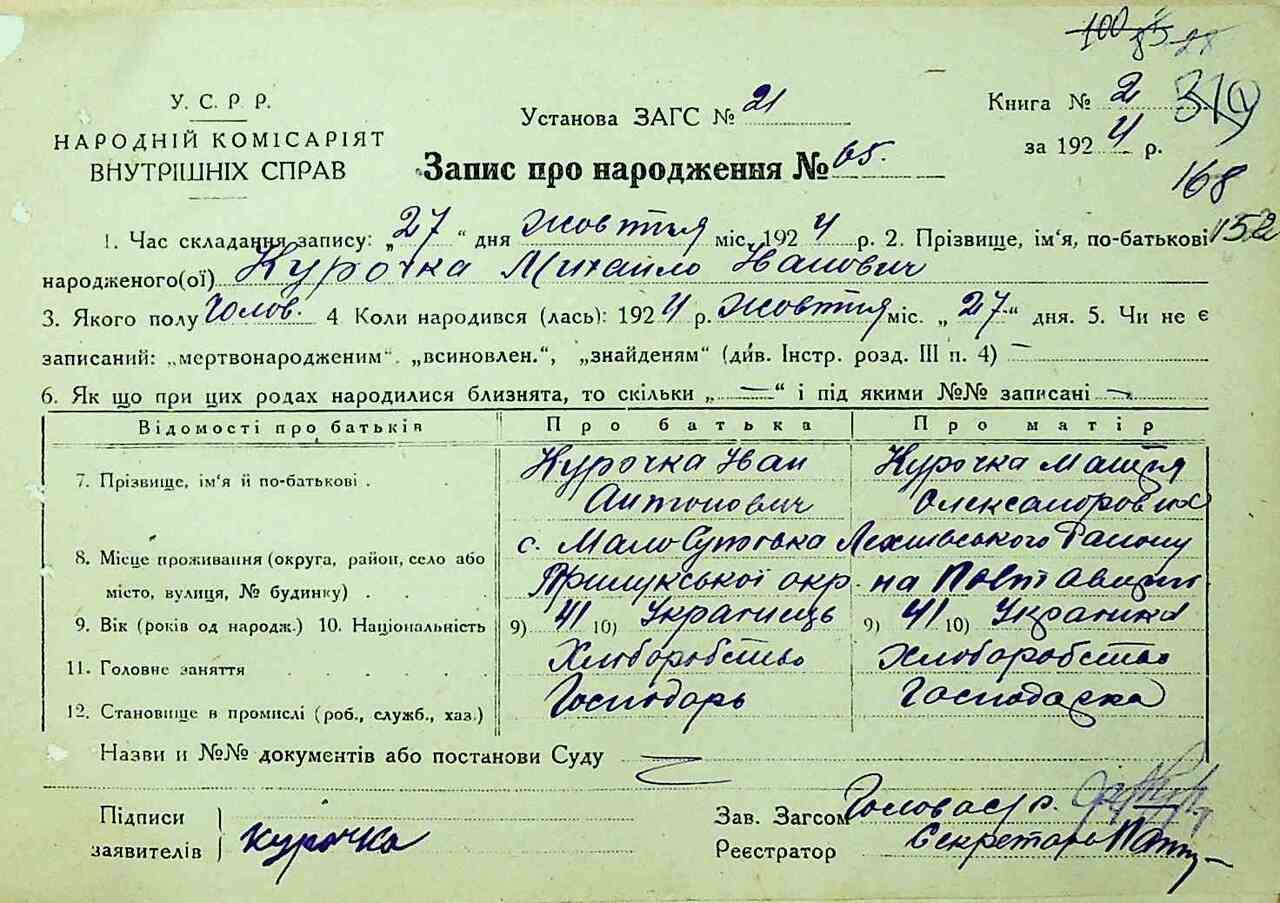 100
319
168
152
У. С. Р. Р.
НАРОДНІЙ КОМІСАРІЯТ
ВНУТРІШНІХ СПРАВ
Установа ЗАГС № 21
Книга № 2
за 1924 р.
Запис про народження № 65.
1. Час складання запису: „27“ дня жовтня міс. 1924 р. 2. Прізвище, ім‘я, по-батькові
народженого(ої) Курочка Михайло Іванович
3. Якого полу Чолов. 4 Коли народився (лась): 1924 р. жовтня міс. „27“ дня. 5. Чи не є
записаний: „мертвонародженим“. „всиновлен.“, „знайденям“ (див. Інстр. розд. III п. 4) —
6. Як що при цих родах народилися близнята, то скільки „—“ і під якими №№ записані —
Відомості про батьків Про батька Про матір
7. Прізвище, ім‘я й по-батькові . Курочка Іван Курочка
Антонович Олександровна
8. Місце проживання (округа, район, село або с. Району
місто, вулиця, № будинку) . . Прилукської окр. на Полтавщині
9. Вік (років од народж.) 10. Національність 9) 41 10) Українець 9) 41 10) Українка
11. Головне заняття . . . . . Хліборобство Хліборобство
12. Становище в промислі (роб., служб., хаз.) Господарь Господарка
Назви и №№ документів або постанови Суду —
Підписи
заявителів Курочка
Зав. Загсом Голова с/р.
Реєстратор Секретарь